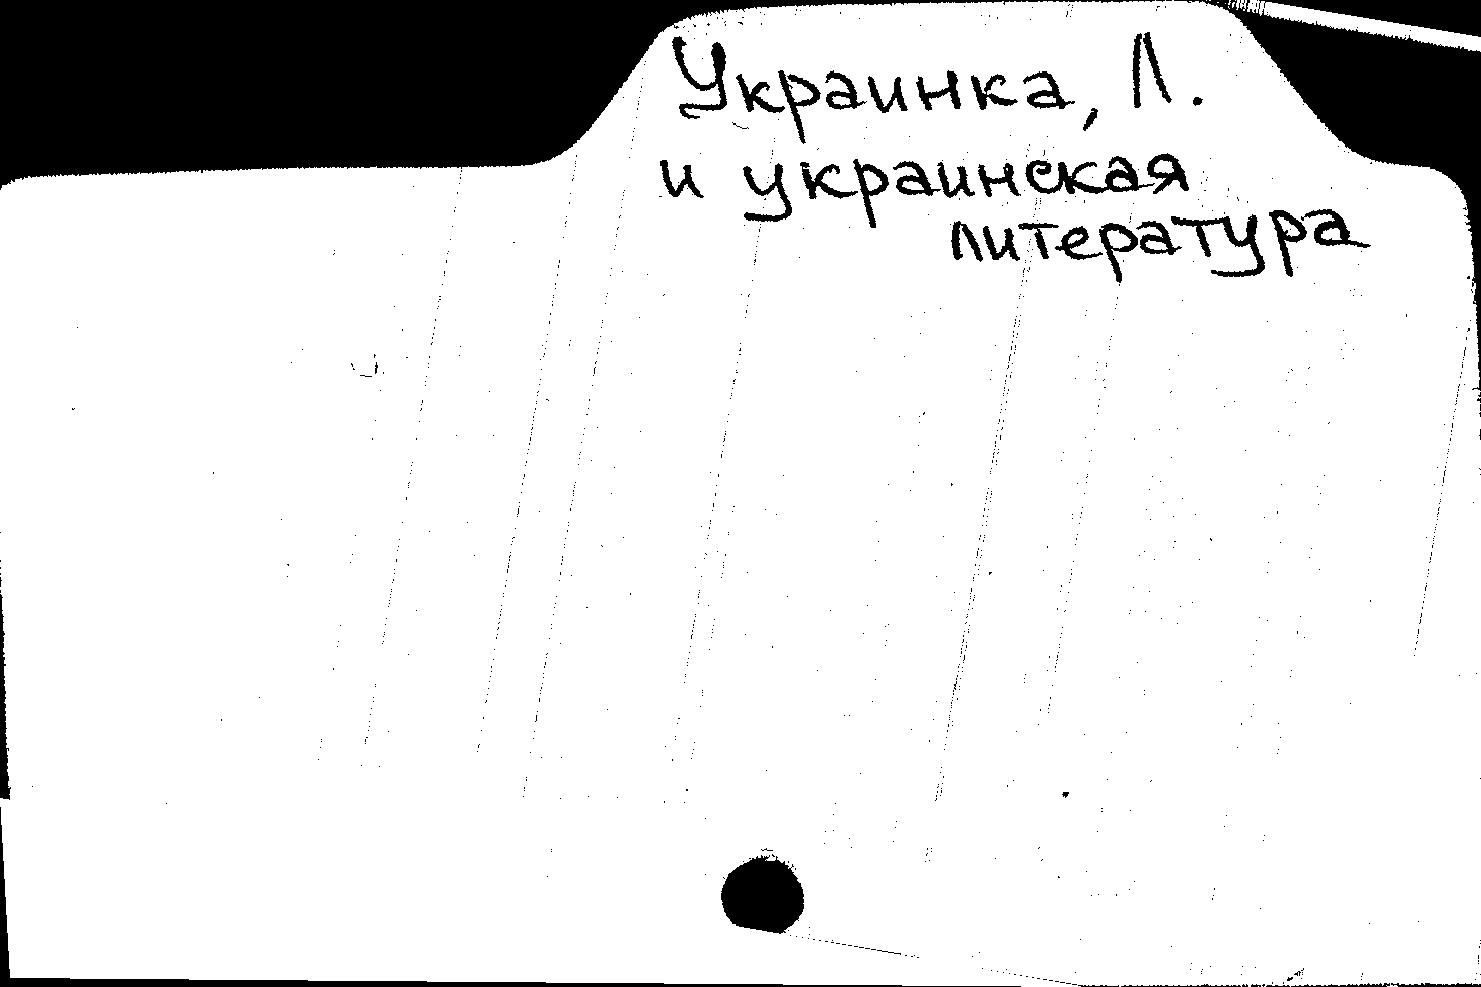 Украинка, Л.
и украинская
литература